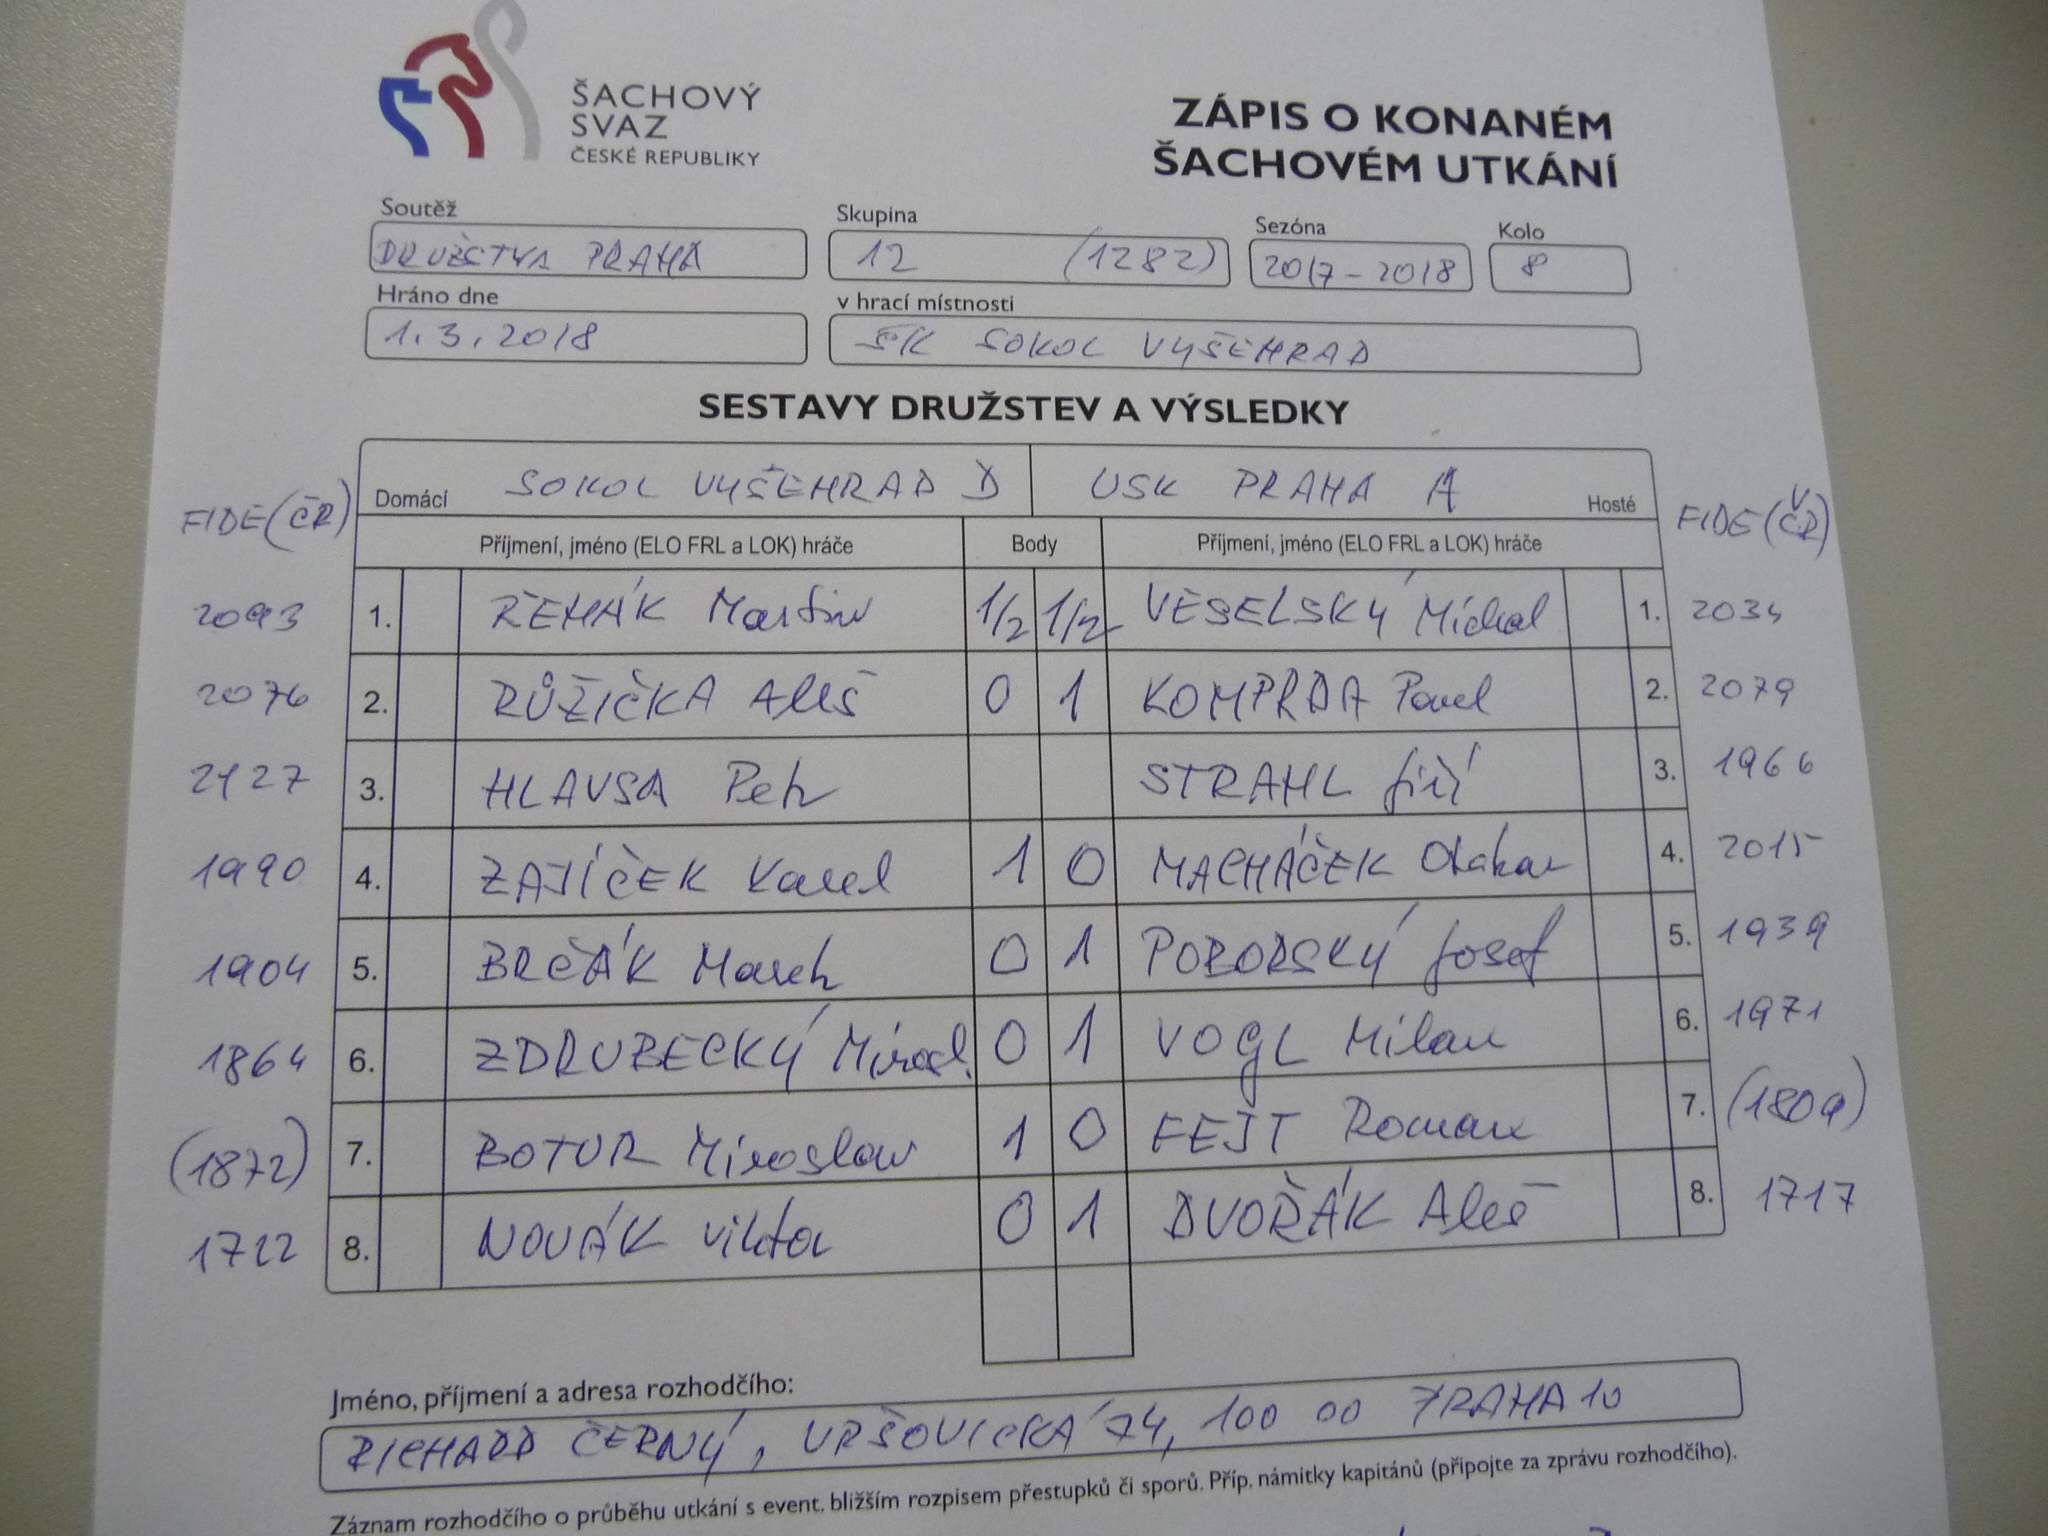 ŠACHOVÝ
SVAZ
ČESKÉ REPUBLIKY
ZÁPIS O KONANÉM
ŠACHOVÉM UTKÁNÍ
Soutěž Skupina Sezóna Kolo
DRUŽSTVA PRAHA 12 (1282) 2017-2018 8
Hráno dne v hrací místnosti
1.3.2018 ŠK SOKOL VYŠEHRAD
SESTAVY DRUŽSTEV A VÝSLEDKY
FIDE (ČR) Domácí SOKOL VYŠEHRAD D USK PRAHA A Hosté FIDE (ČR)
Příjmení, jméno (ELO FRL a LOK) hráče Body Příjmení, jméno (ELO FRL a LOK) hráče
2093 1. ŘEHÁK Martin 1/2 1/2 VESELSKÝ Michal 1. 2034
2076 2. RŮŽIČKA Aleš 0 1 KOMPRDA Pavel 2. 2079
2127 3. HLAVSA Petr STRAHL Jiří 3. 1966
1990 4. ZAJÍČEK Karel 1 0 MACHÁČEK Otakar 4. 2015
1904 5. BRČÁK Marek 0 1 POBORSKÝ Josef 5. 1939
1864 6. ZDRUBECKÝ Mirosl. 0 1 VOGL Milan 6. 1971
(1872) 7. BOTUR Miroslav 1 0 FEJT Roman 7. (1809)
1722 8. NOVÁK Viktor 0 1 DVOŘÁK Aleš 8. 1717
Jméno, příjmení a adresa rozhodčího:
RICHARD ČERNÝ, VRŠOVICKÁ 74, 100 00 PRAHA 10
Záznam rozhodčího o průběhu utkání s event. bližším rozpisem přestupků či sporů. Příp. námitky kapitánů (připojte za zprávu rozhodčího).